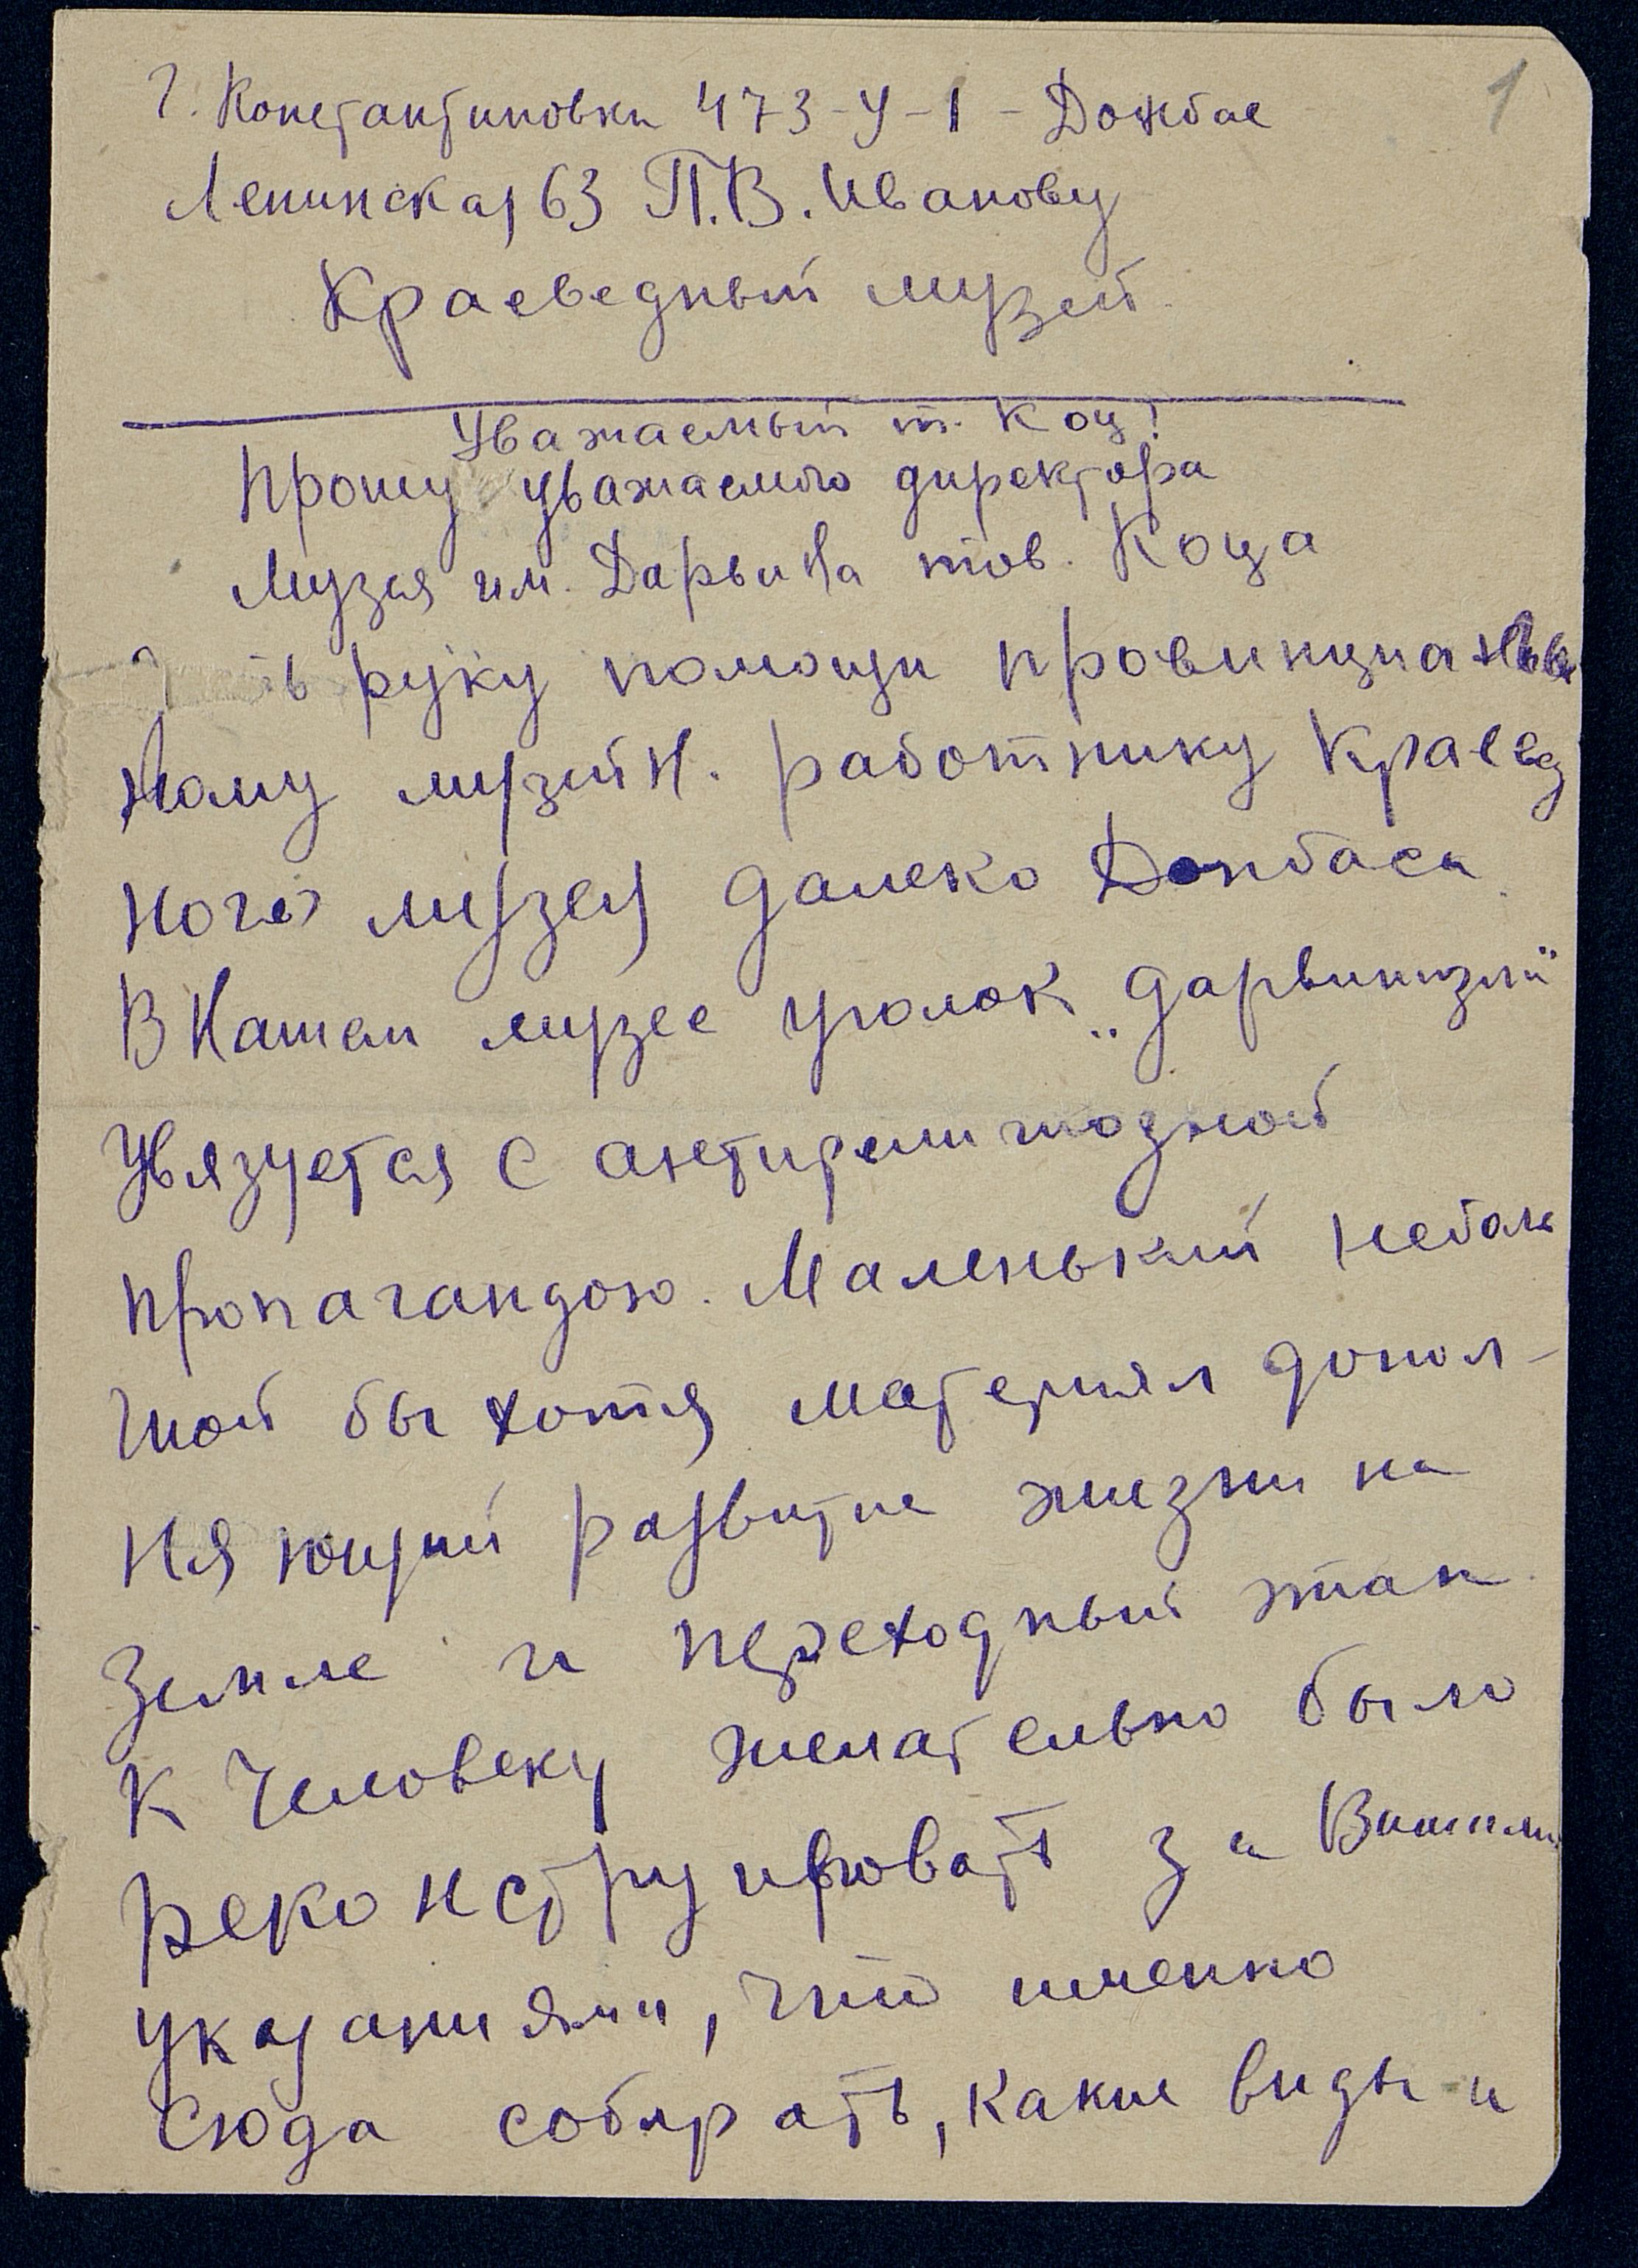 1
г. Константиновка 473-У-1 - Донбас
Ленинская 63 П.В. Иванову
Краеведный музей
Уважаемый т. Коц!
Прошу уважаемого директора
Музея им. Дарвина тов. Коца
руку помощи провинциаль
ному музейн. работнику Краевед
ного музея далеко Донбаса
В Нашем музее уголок „дарвинизм"
Увязуется с антирелигиозной
пропагандою. Маленький неболь
шой бы хотя материял допол-
няющий развитие жизни на
Земле и переходный этап
к Человеку желательно было
реконструировать за Вашими
указаниями, что именно
сюда собирать, какие виды и